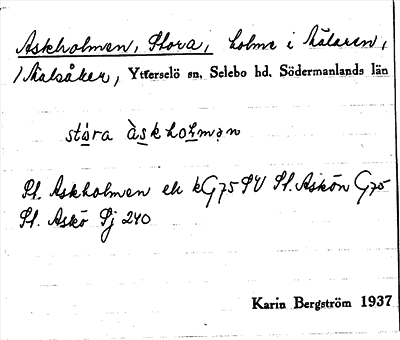 Askholmen, Stora, holme i Mälaren,
Ytterselö sn, Selebo hd. Södermanlands län
stóra àskholmən
St. Askholmen ek kG75SV St. Askön G75
St. Askö Sj 240
Karin Bergström 1937